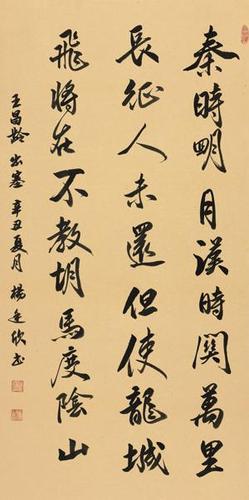 秦時明月漢時關萬里
長征人未還但使龍城
飛將在不教胡馬度陰山
王昌齡 出塞 辛丑夏月 楊 欣書